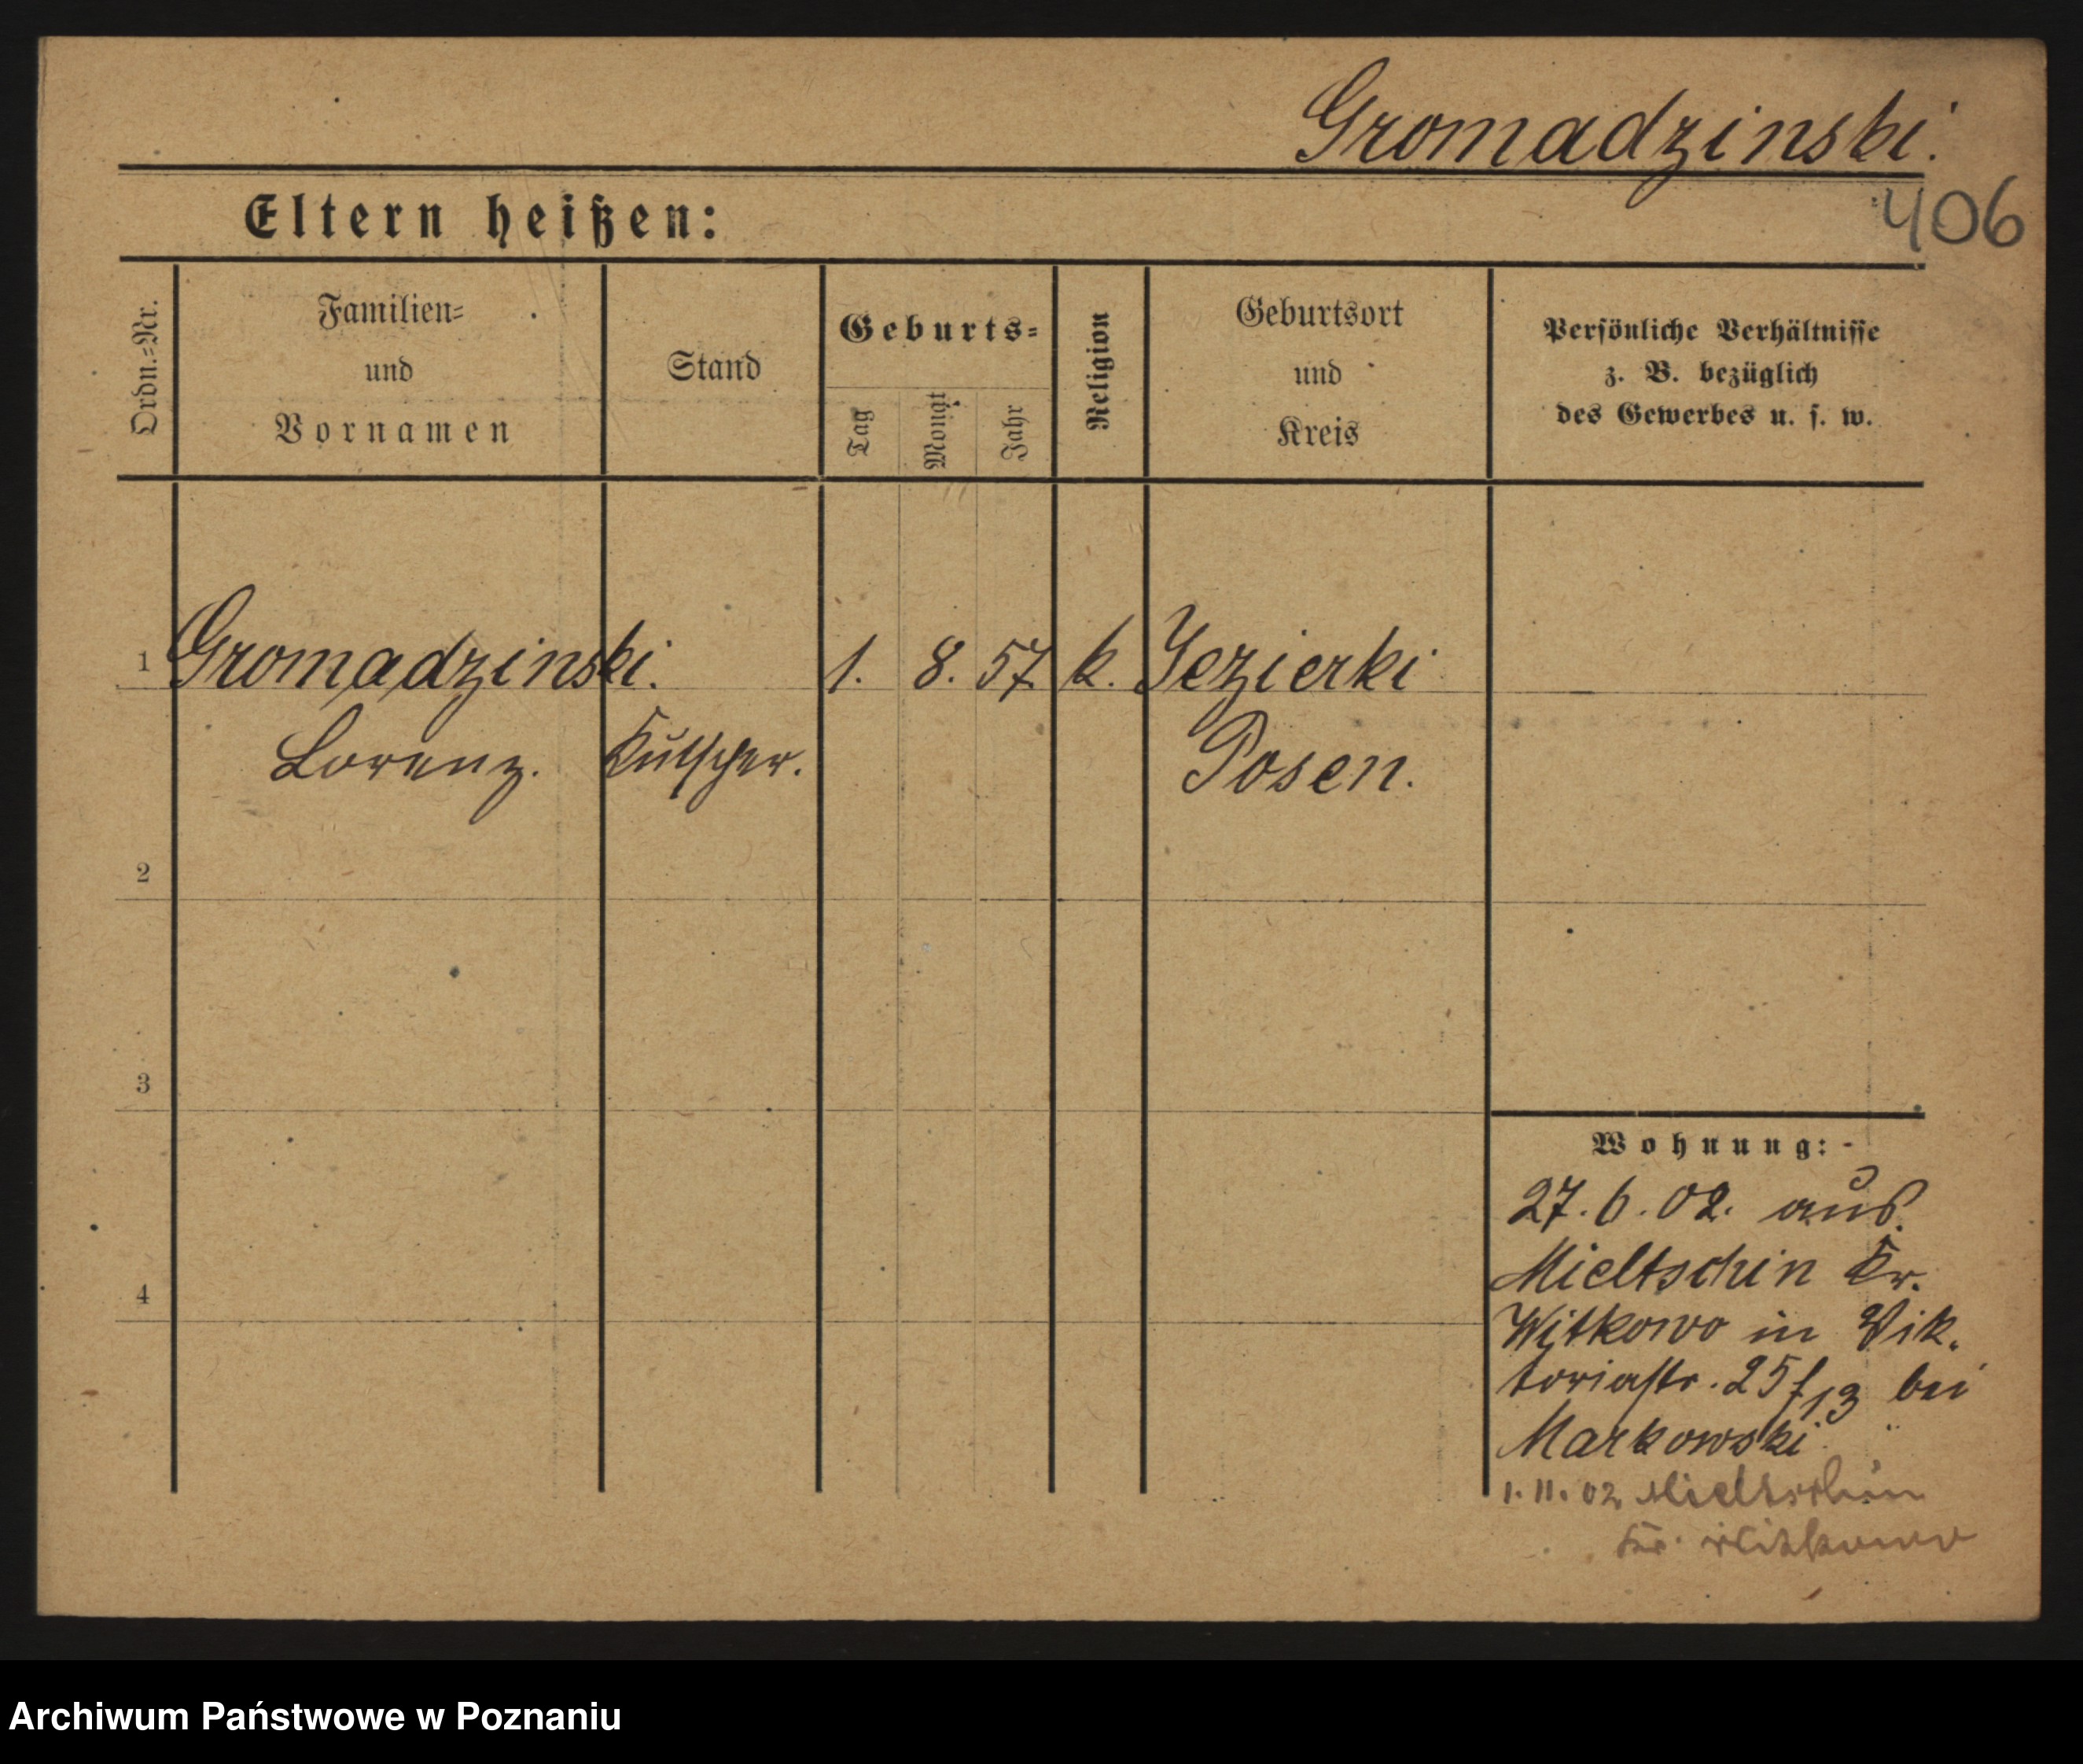 Gromadzinski.
406
Eltern heißen:
Ordn.=Nr.
Familien=
und
Vornamen
Stand
Geburts=
Tag
Monat
Jahr
Religion
Geburtsort
und
Kreis
Persönliche Verhältnisse
z. B. bezüglich
des Gewerbes u. s. w.
1 Gromadzinski. 1. 8. 57. k. Jezierki
Lorenz. Kutscher. Posen.
2
3
4
Wohnung:
27. 6. 02. aus
Mieltschin Kr.
Witkowo in Vik.
toriastr. 25 f 13 bei
Markowski
1. 11. 02 Mieltschin
Kr. Witkowo
Archiwum Państwowe w Poznaniu